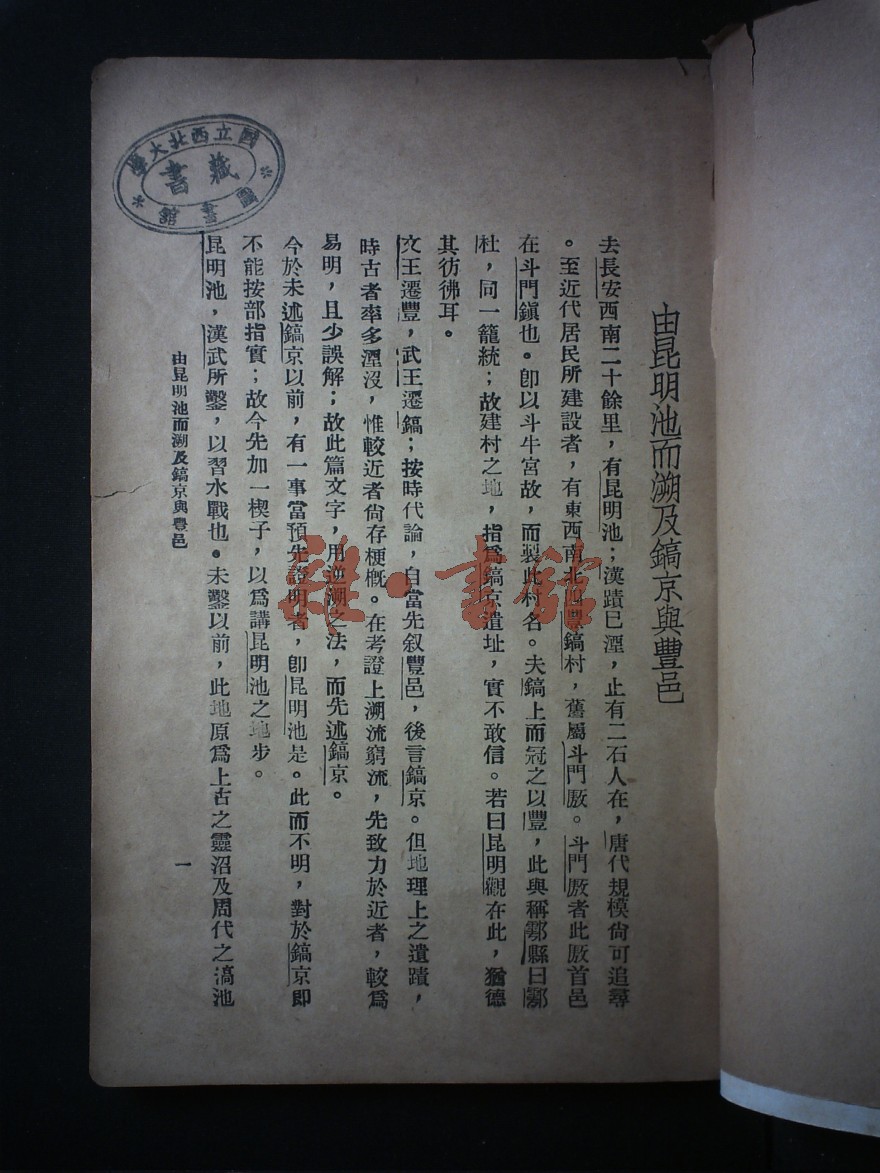 由昆明池而溯及鎬京與豐邑
去長安西南二十餘里，有昆明池；漢蹟已湮，止有二石人在，唐代規模尙可追尋
。至近代居民所建設者，有東西南北四豐鎬村，舊屬斗門厫。斗門厫者此厫首邑
在斗門鎭也。卽以斗牛宮故，而製此村名。夫鎬上而冠之以豐，此與稱鄠縣曰鄠
杜，同一籠統；故建村之地，指爲鎬京遺址，實不敢信。若曰昆明觀在此，猶德
其彷彿耳。
文王遷豐，武王遷鎬；按時代論，自當先叙豐邑，後言鎬京。但地理上之遺蹟，
時古者率多湮沒，惟較近者尙存梗概。在考證上溯流窮流，先致力於近者，較爲
易明，且少誤解；故此篇文字，用逆溯之法，而先述鎬京。
今於未述鎬京以前，有一事當預先證明者，卽昆明池是。此而不明，對於鎬京即
不能按部指實；故今先加一楔子，以爲講昆明池之地步。
昆明池，漢武所鑿，以習水戰也。未鑿以前，此地原爲上古之靈沼及周代之滈池
由昆明池而溯及鎬京與豐邑
一
國立西北大學
藏書
圖書館
雜·書館